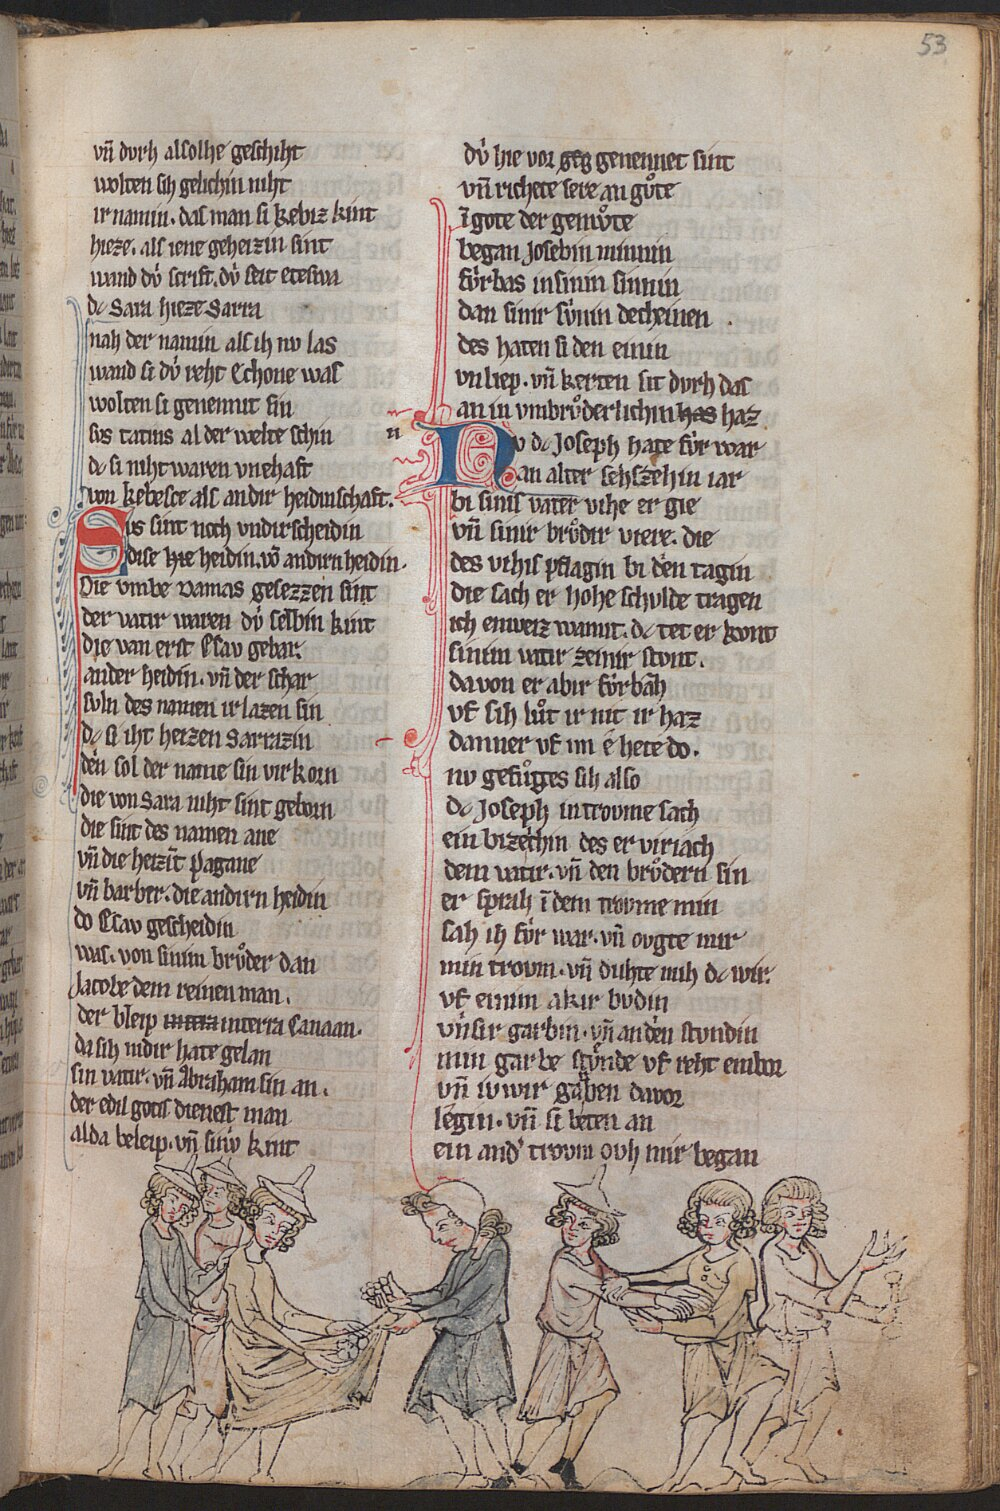 53
vn̄ dvrh alsolhe geschiht
wolten sih gelichin niht
ir namin. das man si kebiz kint
hieze. als iene geheizin sint
wand dv́ scrift. dv́ seit
dc Sara hieze Sarra
nah der namin als ih nv las
wand si dv́ reht Echone was
wolten si genennit sin
svs tatins al der welte schin
dc si niht waren vnehaft
von kebesce als andir heidinschaft.
Svs sint noch vndirscheidin
dise hie heidin. vō andirn heidin.
Die vmbe Damas gesezzen sint
der vatir waren dv́ selbin kint
die van erst Esav gebar.
ander heidin. vn̄ der schar
svln des namen ir lazen sin
dc si iht heizen Sarrazin
den sol der name sin virkorn
die von Sara niht sint geborn
die sint des namen ane
vn̄ die heizīt Pagane
vn̄ barber. die andirn heidin
do Esav gescheidin
was. von sinim brvͦder dan
Jacobe dem reinen man.
der bleip interra Canaan.
da sih nidir hate gelan
sin vatir. vn̄ Abraham sin an.
der edil gotis dienest man
alda beleip. vn̄ sinv́ kint
dv́ hie vor geg genennet sint
vn̄ richete sere an gvͦte
ī gote der gemvͦte
began Josebin minnin
fv́rbas in sinin sinnin
dan sinir sv́nin decheinen
des haten si den einin
vnliep. vn̄ kerten sit dvrh das
an in vnbrvͤderlichin has haz
n
Nv dc Joseph hate fv́r war
an alter sehszehin iar
bi sinis vater vihe er gie
vn̄ sinir brvͤdir viere. die
des vihis pflagin bi den tagin
die sach er hohe schvlde tragen
ich enweiz wamit. dc tet er kvnt
sinim vatir zeinir stvnt.
davon er abir fv́rbāh
vf sih lvͦt ir nit ir haz
danner vf im ē hete do.
nv gefvͦgtes sih also
dc Joseph in trovme sach
ein bizechin des er viriach
dem vatir. vn̄ den brvͤdern sin
er sprah ī dem trovme min
sah ih fv́r war. vn̄ ovgte mir
min trovm. vn̄ duhte mih dc wir.
vf einim akir bvdin
vnsir garbin. vn̄ an den stvndin
min garbe stv̊nde vf reht enbor
vn̄ iwwir garben davor
legin. vn̄ si beten an
ein and' trovm ovh mir began